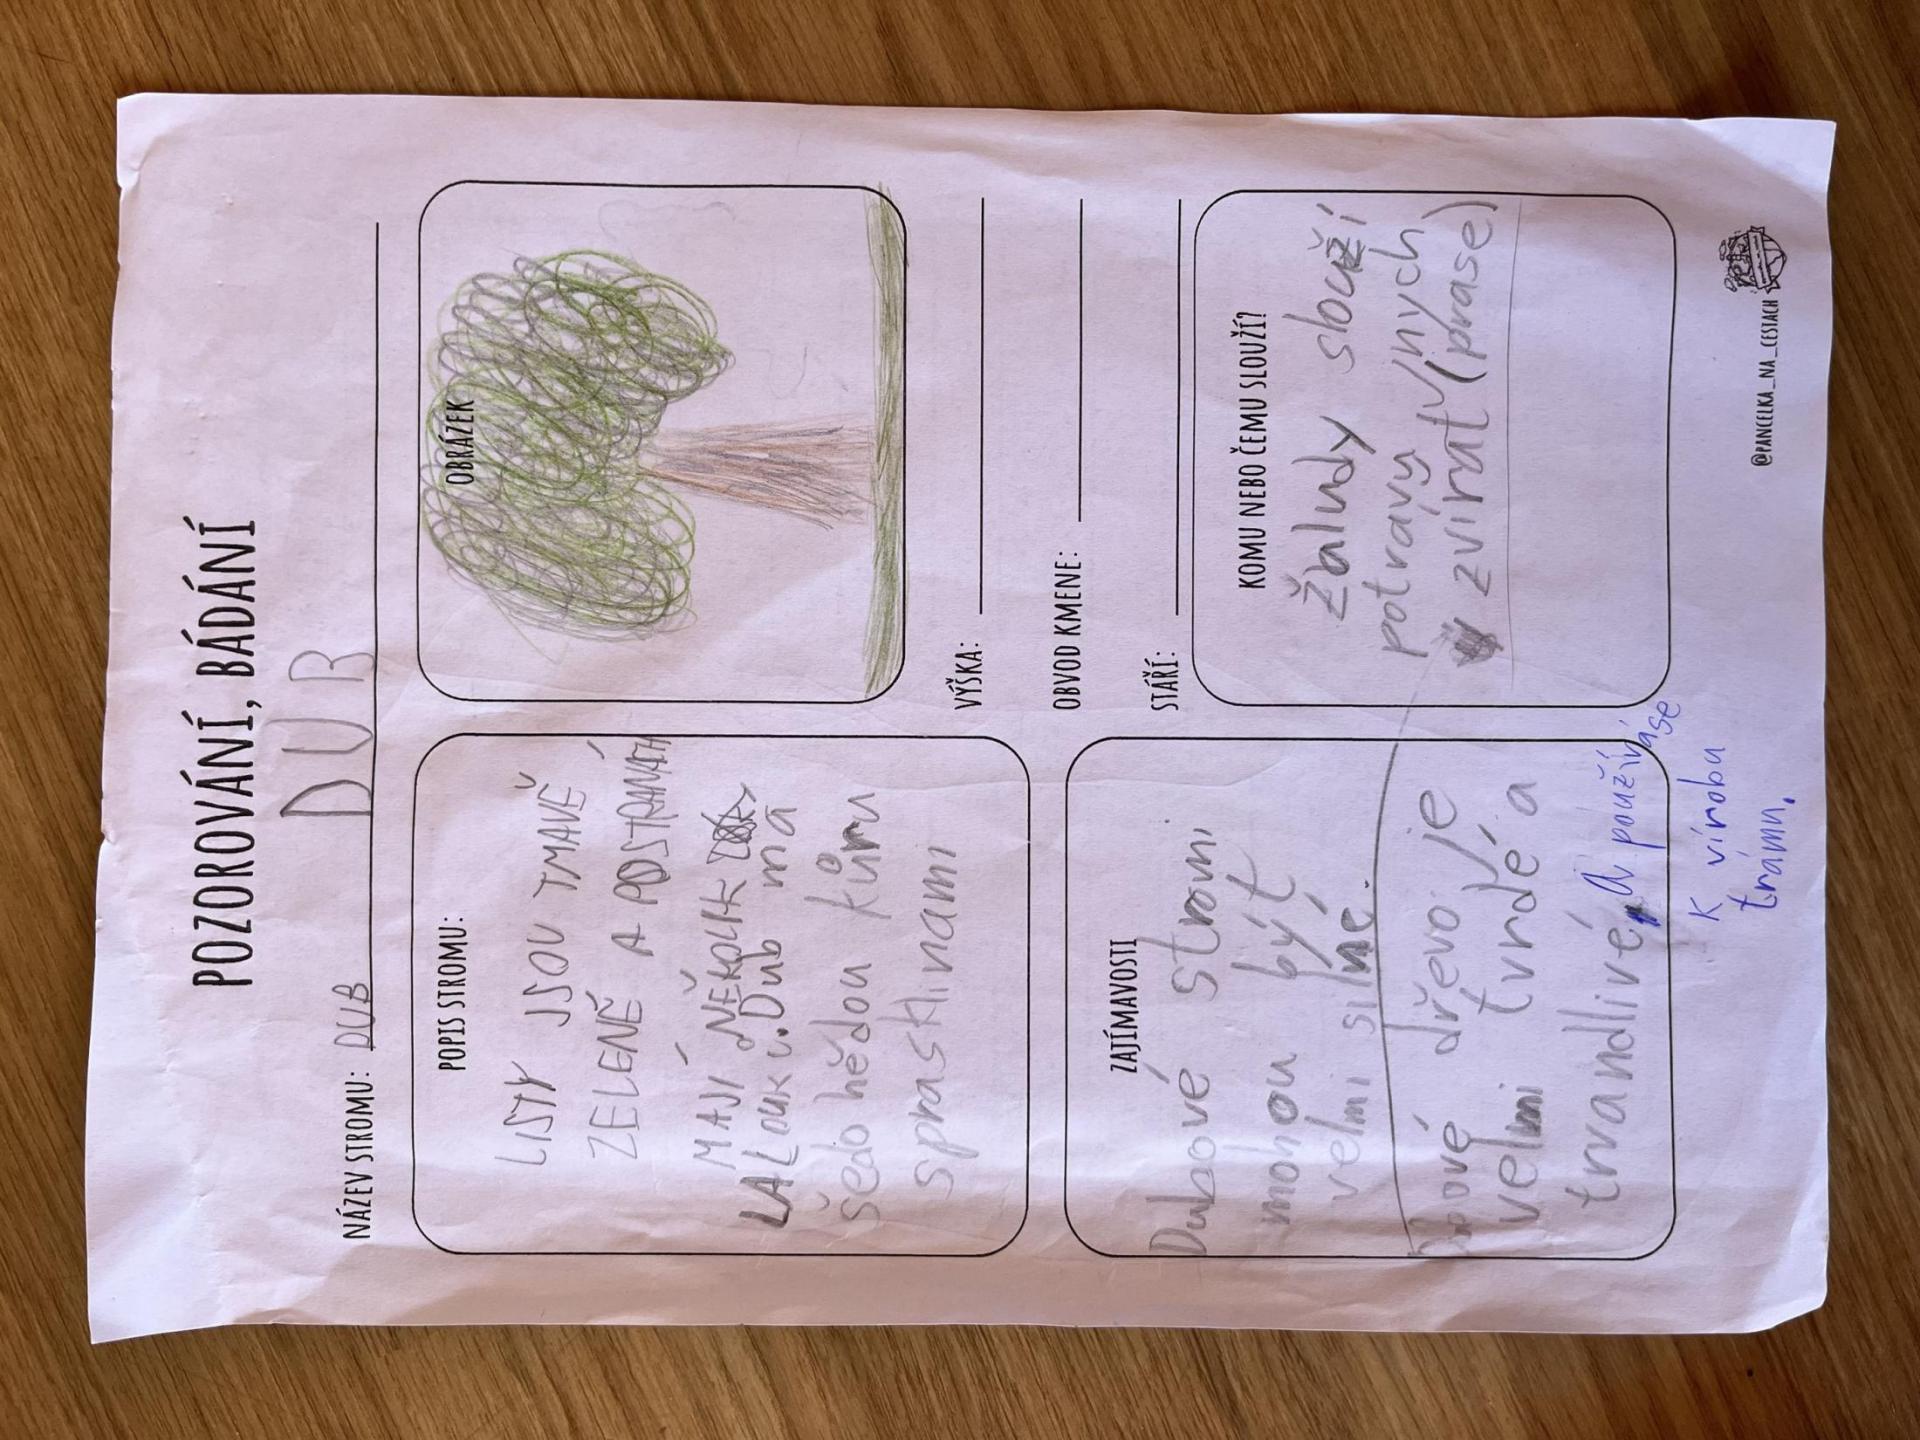 POZOROVÁNÍ, BÁDÁNÍ
DUB
NÁZEV STROMU: DUB
POPIS STROMU:
LISTY JSOU TMAVĚ
ZELENĚ A PO STRANÁCH
MAJÍ NĚKOLIK
LALOUKU. Dub má
šedo hědou kůru
s prasklinami
OBRÁZEK
VÝŠKA:
OBVOD KMENE:
STÁŘÍ:
ZAJÍMAVOSTI
Dubové stromi
mohou být
velmi silné.
dřevo je
velmi tvrdé a
trvandlivé, a používáse
k vírobu
trámu.
KOMU NEBO ČEMU SLOUŽÍ?
Žaludy slouží
potravy
zvířat (prase)
@PANCELKA_NA_CESTACH